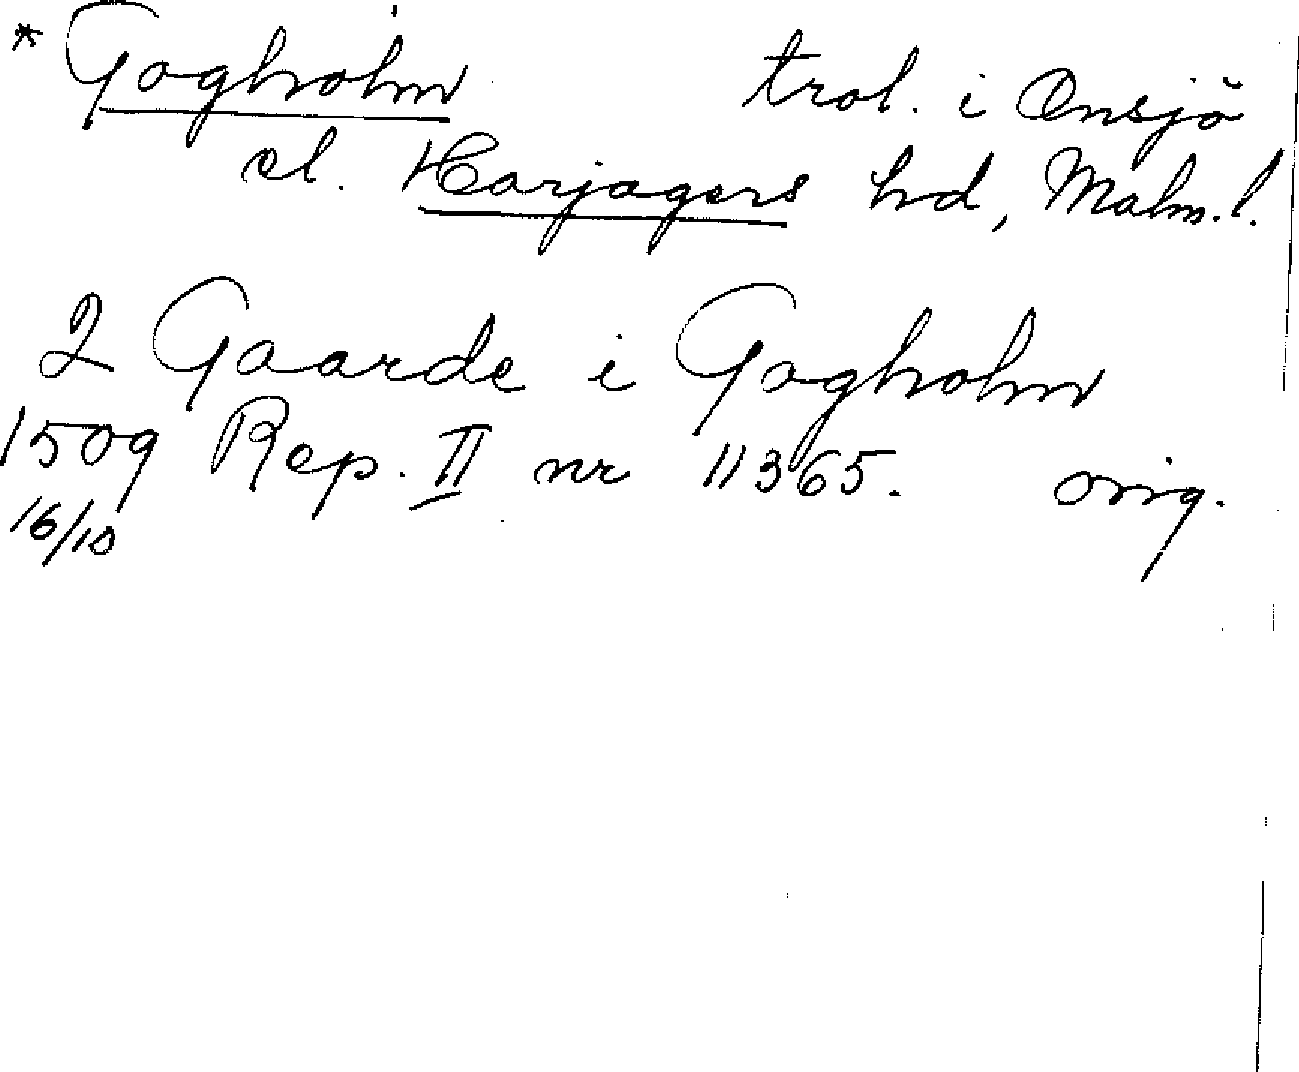 * Gagholm trol. i Onsjö
el. Harjagers hd, Malm.l.
2 Gaarde i Gagholm
1509 Rep. II nr 11365. orig.
16/10